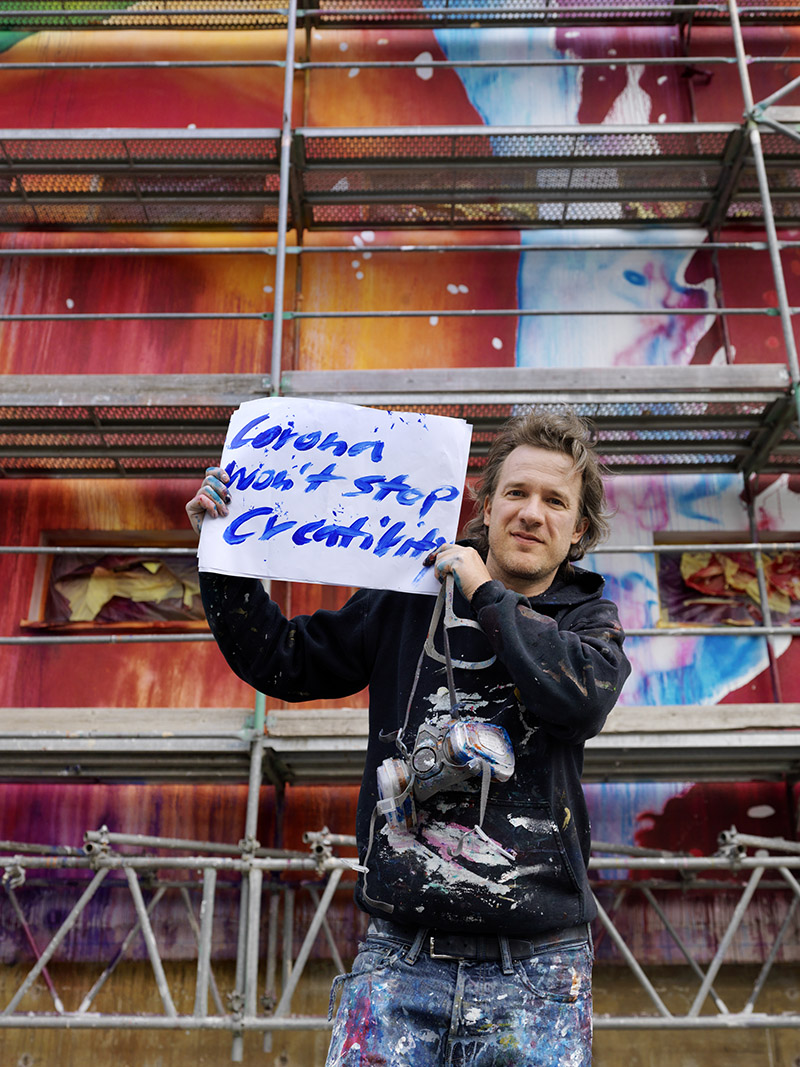 Corona
Won't stop
Creatility